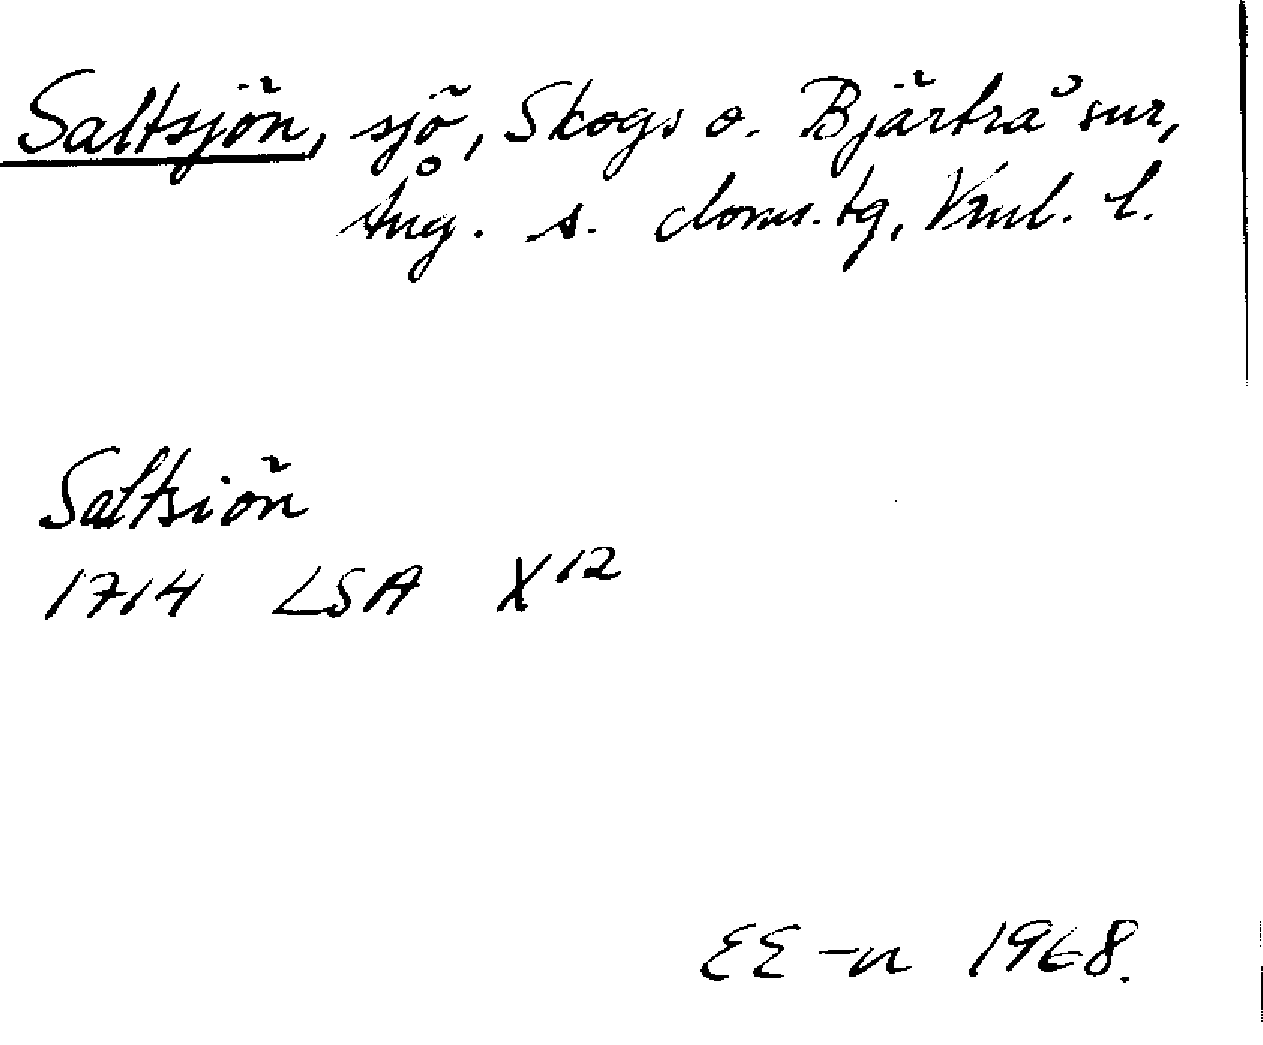 Saltsjön, sjö, Skogs o. Bjärtrå snr,
Ång. s. doms. tg, Vnul. l.
Saltsiön
1714 LSA X12
EE-n 1968.